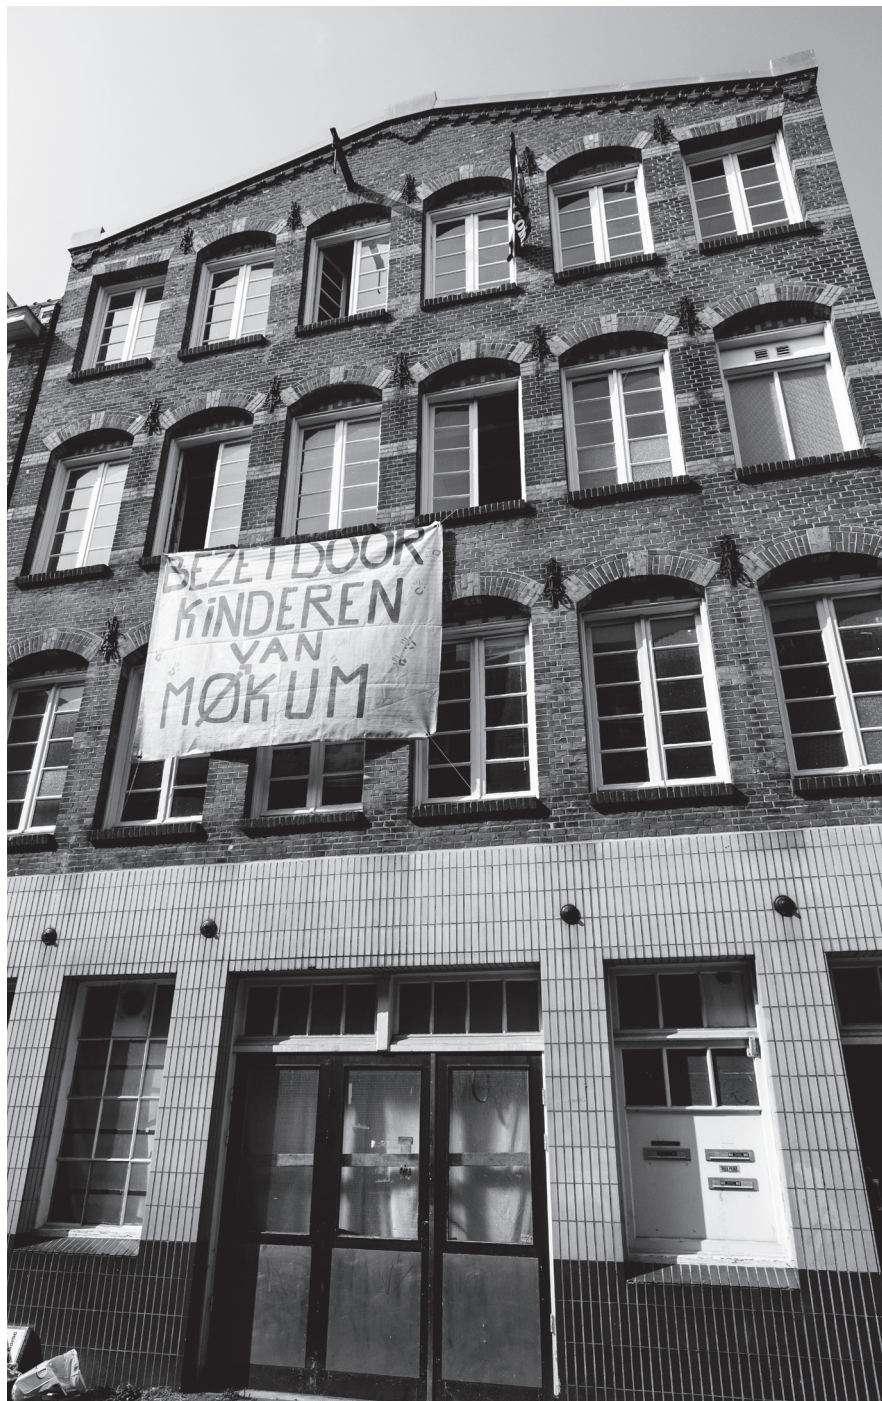 BEZET DOOR
KiNDEREN
VAN
MØKUM